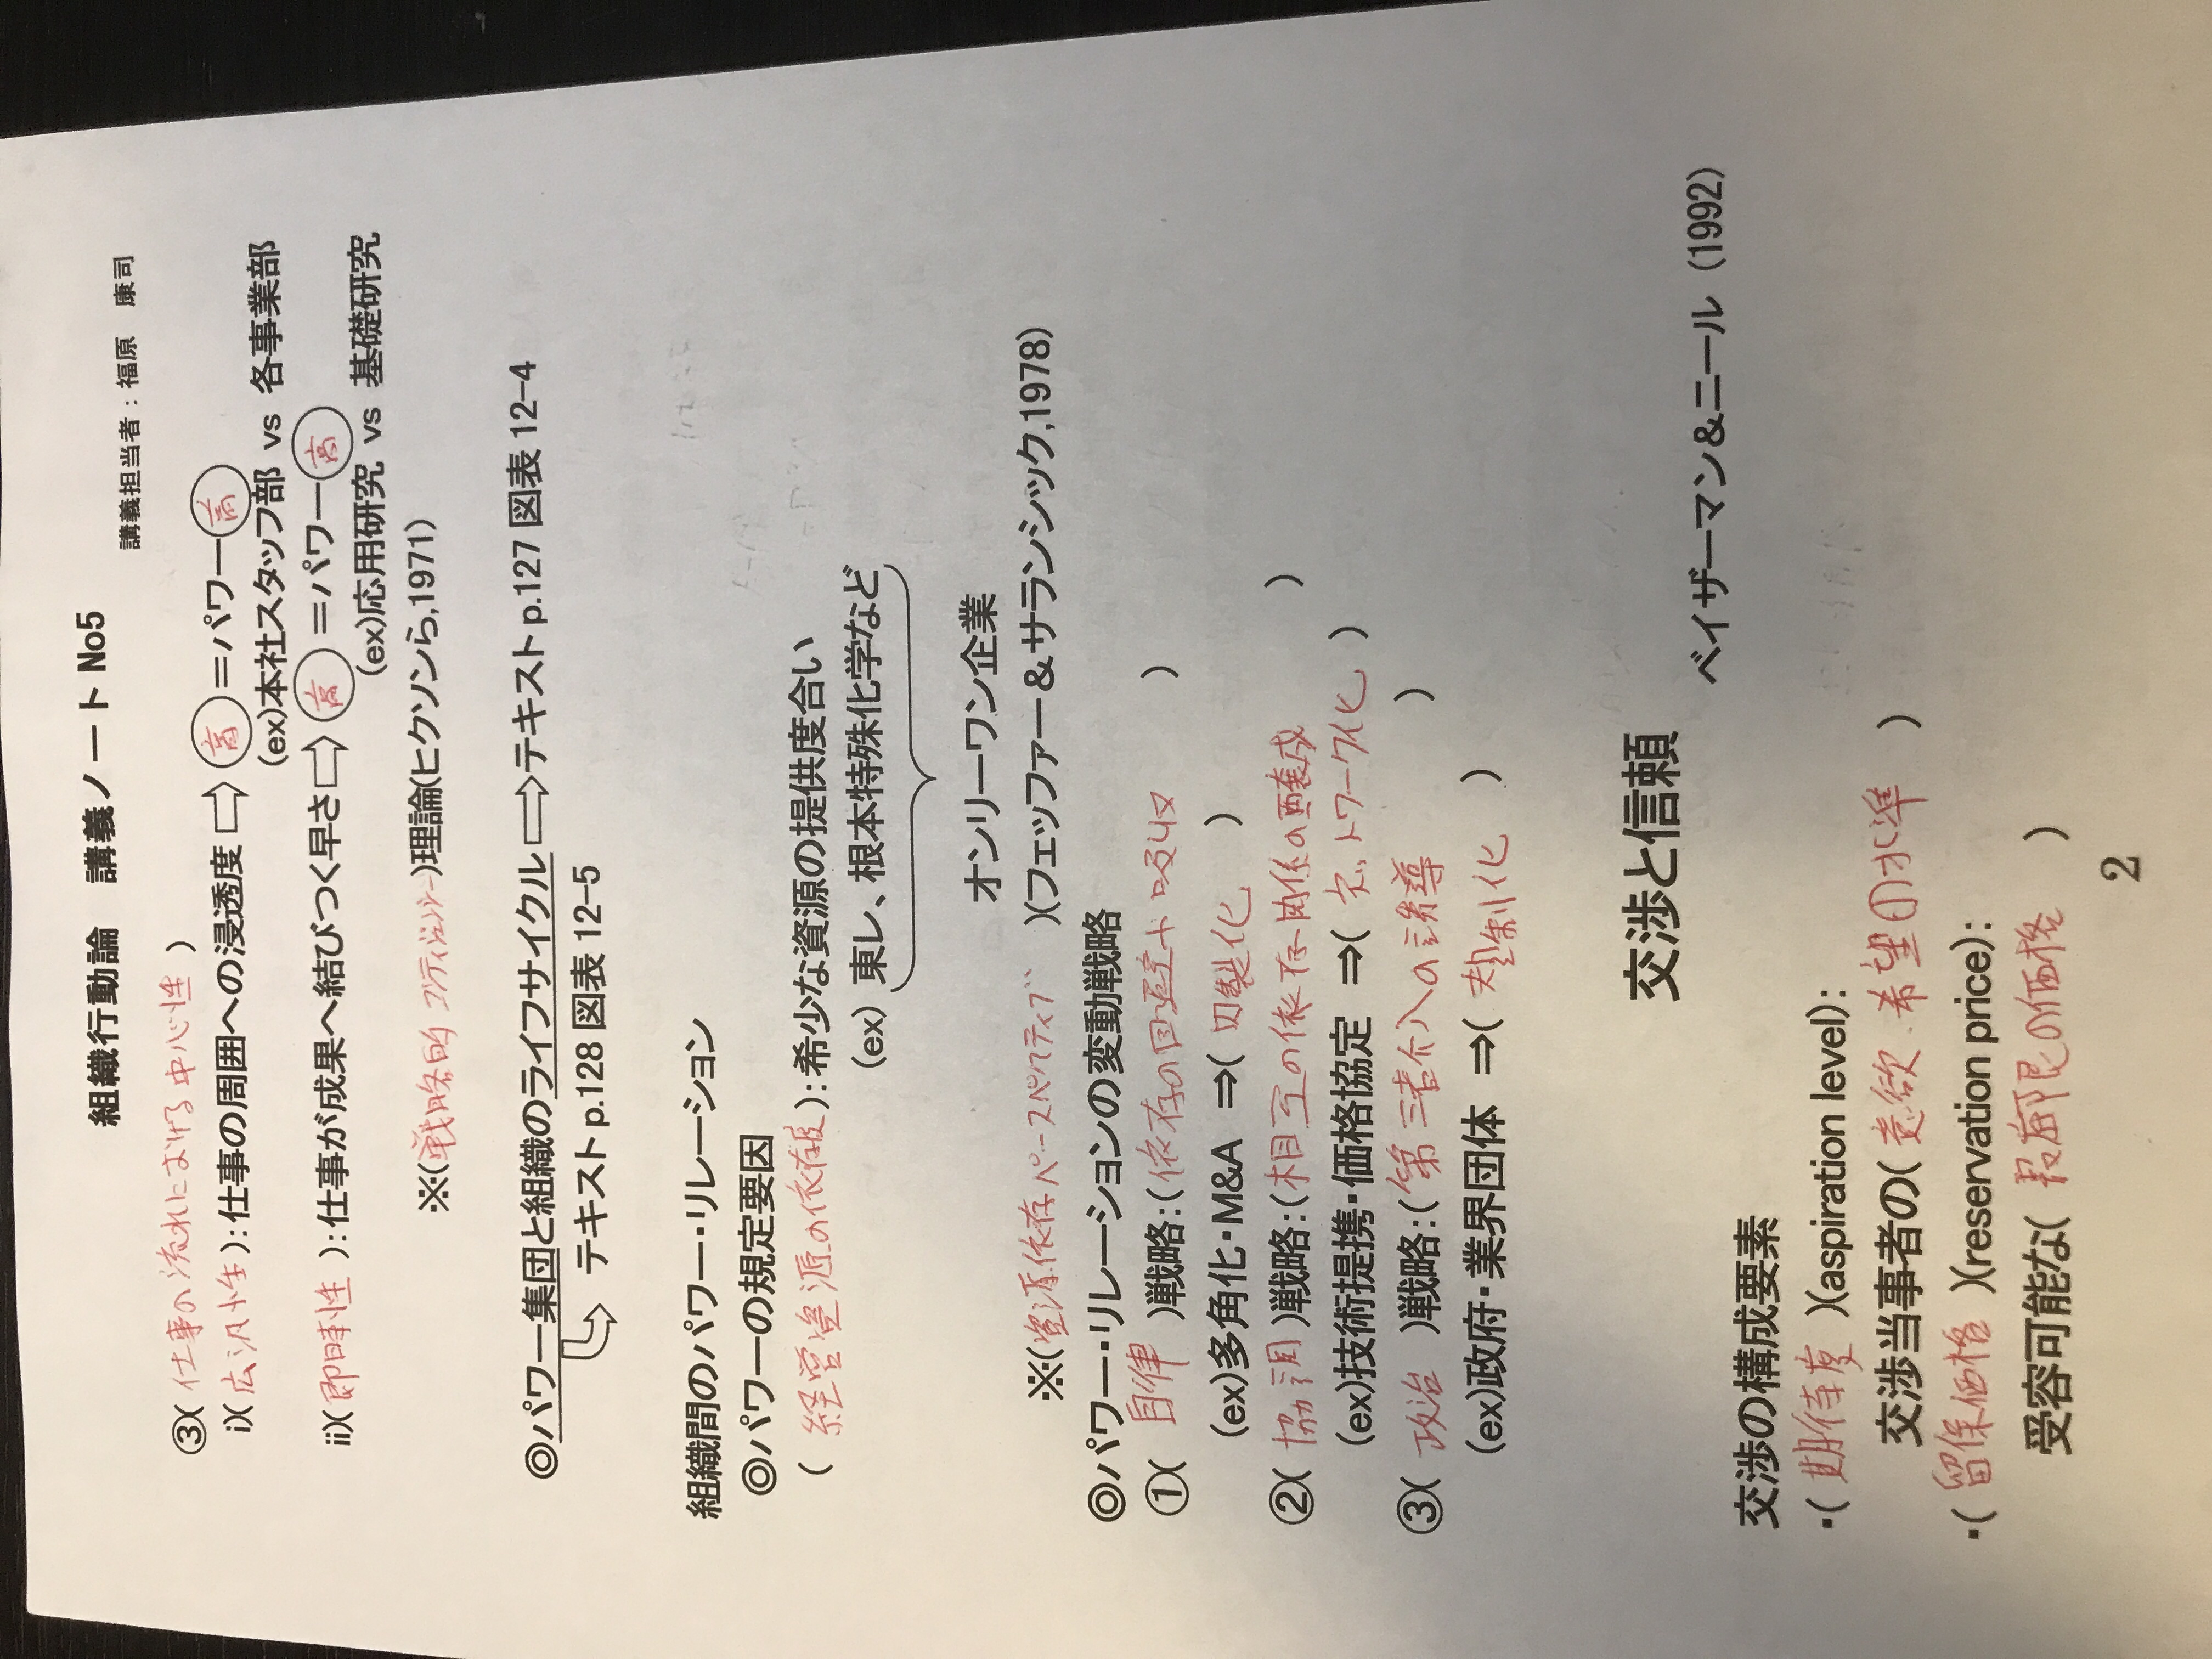 組織行動論　講義ノート No5
講義担当者：福原　康司
③( 仕事の流れにおける中心性 )
i)( 広汎性 )：仕事の周囲への浸透度 ⇨ 高 ＝パワー 高
(ex)本社スタッフ部 vs 各事業部
ii)( 即時性 )：仕事が成果へ結びつく早さ ⇨ 高 ＝パワー 高
(ex)応用研究 vs 基礎研究
※(戦略的 コンティンジェンシー)理論(ヒクソンら,1971)
◎パワー集団と組織のライフサイクル ⇨ テキスト p.127 図表 12-4
テキスト p.128 図表 12-5
組織間のパワー・リレーション
◎パワーの規定要因
( 経営資源の依存度 )：希少な資源の提供度合い
(ex) 東レ、根本特殊化学など
オンリーワン企業
※(資源依存パースペクティブ )(フェッファー＆サランシック,1978)
◎パワー・リレーションの変動戦略
①( 自律 )戦略：(依存の回避や吸収 )
(ex)多角化・M&A ⇒( 内製化 )
②( 協調 )戦略：(相互の依存関係の醸成 )
(ex)技術提携・価格協定 ⇒( ネットワーク化 )
③( 政治 )戦略：(第三者介入の誘導 )
(ex)政府・業界団体 ⇒( 規制化 )
交渉と信頼
ベイザーマン＆ニール (1992)
交渉の構成要素
・( 期待度 )(aspiration level)：
交渉当事者の( 意欲、希望の水準 )
・( 留保価格 )(reservation price)：
受容可能な( 最底限の価格 )
2